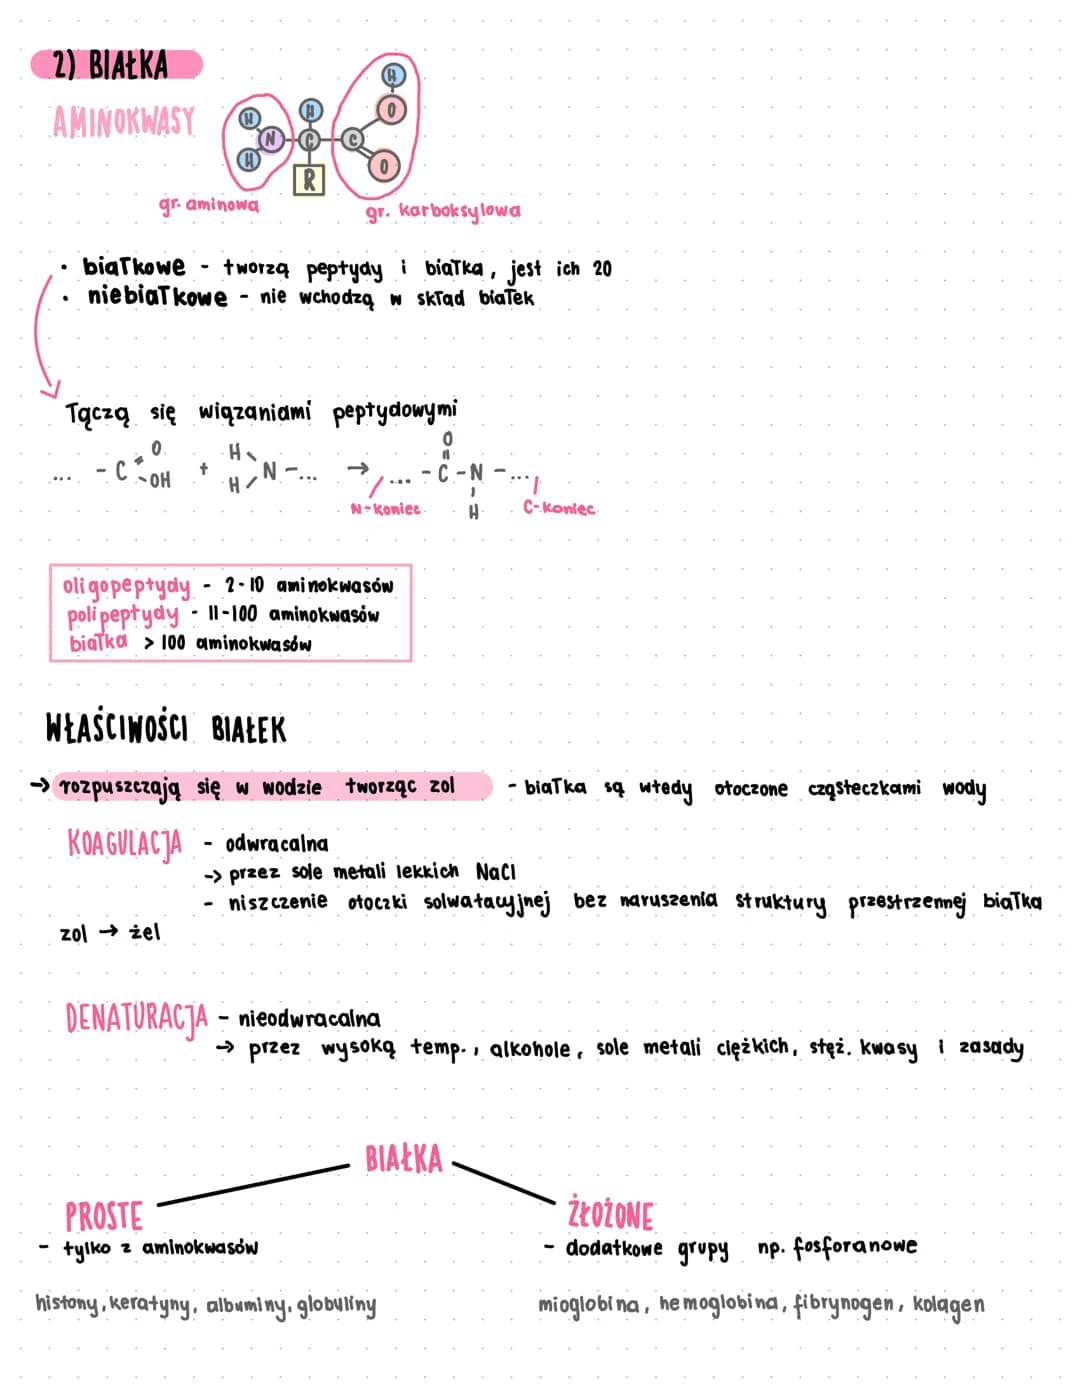 2) BIAŁKA
AMINOKWASY
H
H
N
H
C
R
C
H
O
O
gr. aminowa
gr. karboksylowa
• białkowe - tworzą peptydy i białka, jest ich 20
• niebiałkowe - nie wchodzą w skład białek
łączą się wiązaniami peptydowymi
... - C = O - OH + H H N - ... → ... - C - N - ...
O
H
N-koniec
C-koniec
oligopeptydy - 2-10 aminokwasów
polipeptydy - 11-100 aminokwasów
białka > 100 aminokwasów
WŁAŚCIWOŚCI BIAŁEK
→ rozpuszczają się w wodzie tworząc zol - białka są wtedy otoczone cząsteczkami wody
KOAGULACJA - odwracalna
-> przez sole metali lekkich NaCl
- niszczenie otoczki solwatacyjnej bez naruszenia struktury przestrzennej białka
zol → żel
DENATURACJA - nieodwracalna
→ przez wysoką temp., alkohole, sole metali ciężkich, stęż. kwasy i zasady
BIAŁKA
PROSTE
- tylko z aminokwasów
histony, keratyny, albuminy, globuliny
ŻŁOŻONE
- dodatkowe grupy np. fosforanowe
mioglobina, hemoglobina, fibrynogen, kolagen